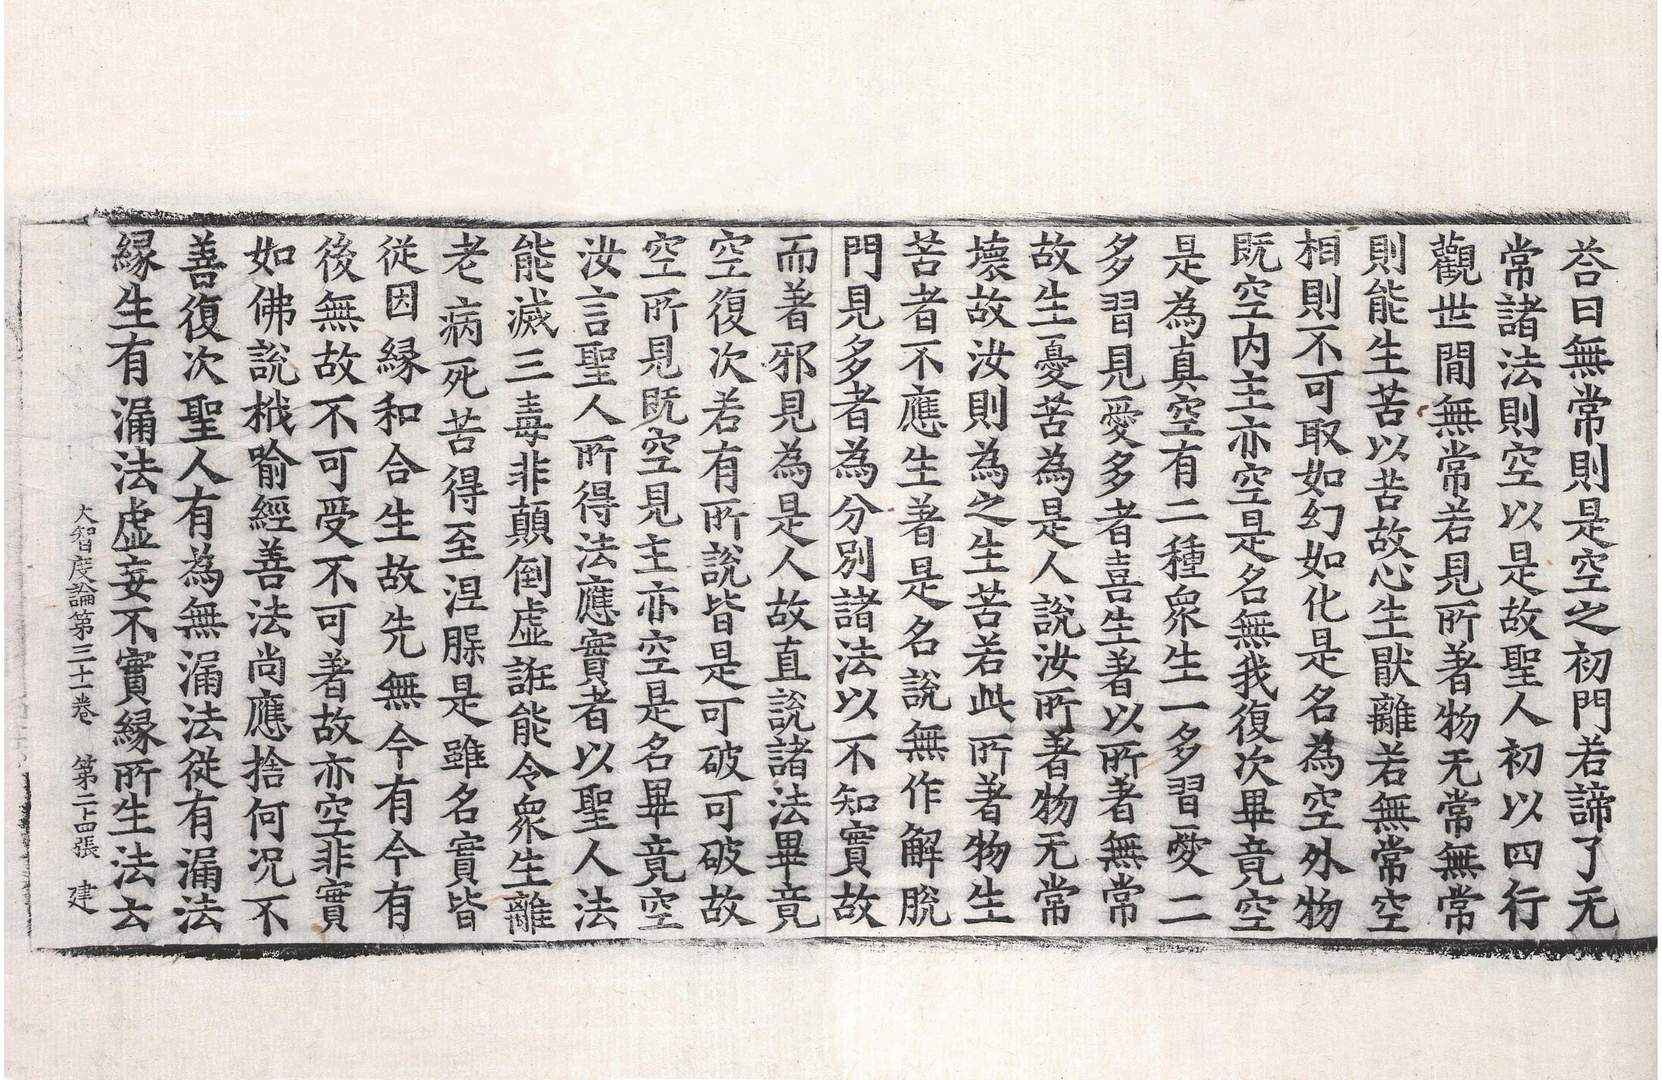 荅曰無常則是空之初門若諦了无
常諸法則空以是故聖人初以四行
觀世閒無常若見所著物无常無常
則能生苦以苦故心生猒離若無常空
相則不可取如幻如化是名為空外物
既空内主亦空是名無我復次畢竟空
是為真空有二種衆生一多習愛二
多習見愛多者喜生著以所著無常
故生憂苦為是人說汝所著物无常
壞故汝則為之生苦若此所著物生
苦者不應生著是名說無作解脫
門見多者為分別諸法以不知實故
而著邪見為是人故直說諸法畢竟
空復次若有所說皆是可破可破故
空所見既空見主亦空是名畢竟空
汝言聖人所得法應實者以聖人法
能滅三毒非顛倒虛誑能令衆生離
老病死苦得至涅槃是雖名實皆
從因緣和合生故先無今有今有
後無故不可受不可著故亦空非實
如佛說栰喻經善法尚應捨何況不
善復次聖人有為無漏法從有漏法
緣生有漏法虛妄不實緣所生法云
大智度論第三十一卷　第二十四張　建